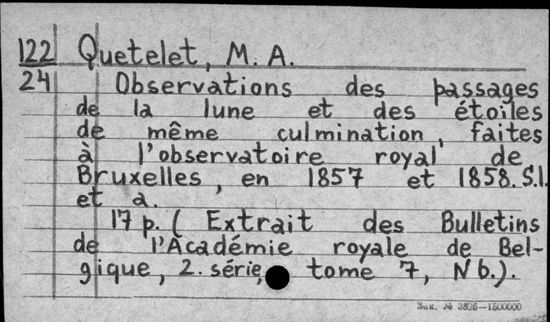 122 Quetelet, M. A.
24 Observations des passages
de la lune et des étoiles
de même culmination, faites
à l'observatoire royal de
Bruxelles, en 1857 et 1858. S.l.
et a.
17 p. (Extrait des Bulletins
de l'Académie royale de Bel-
gique, 2. série, tome 7, N 6.).
Зак. № 3826—1500000